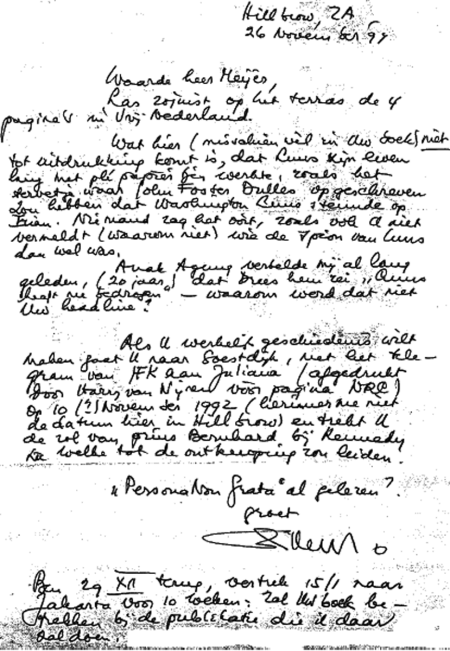 Hillbrow, ZA
26 November 94
Waarde heer Meijer,
Las zojuist op het terras de 4
pagina's in Vrij Nederland.
Wat hier (misschien wel in Uw boek) niet
tot uitdrukking komt is, dat Luns zijn leven
lang met papieren werkte, zoals het
servetje waar John Foster Dulles opgeschreven
zou hebben dat Washington Luns steunde op
Irian. Niemand zag het ooit, zoals ook U niet
vermeldt (waarom niet) wie de spion van Luns
dan wel was.
Anak Agung vertelde mij al lang
geleden, (20 jaar) dat Drees hem zei "Luns
heeft me bedrogen" – waarom werd dat niet
Uw headline?
Als U werkelijk geschiedenis wilt
maken gaat U naar Soestdijk, met het tele-
gram van JFK aan Juliana (afgedrukt
door Harry van voor pagina NRC)
op 10 (?) November 1992 (herinner me niet
de datum hier in Hillbrow) en trekt U
de rol van prins Bernhard bij Kennedy
na welke tot de ontknoping zou leiden.
"Persona Non Grata" al gelezen?
groet
Ben 29 XII terug, vertrek 15/1 naar
Jakarta voor 10 weken: zal Uw boek be-
trekken bij de publicatie die ik daar
zal doen.